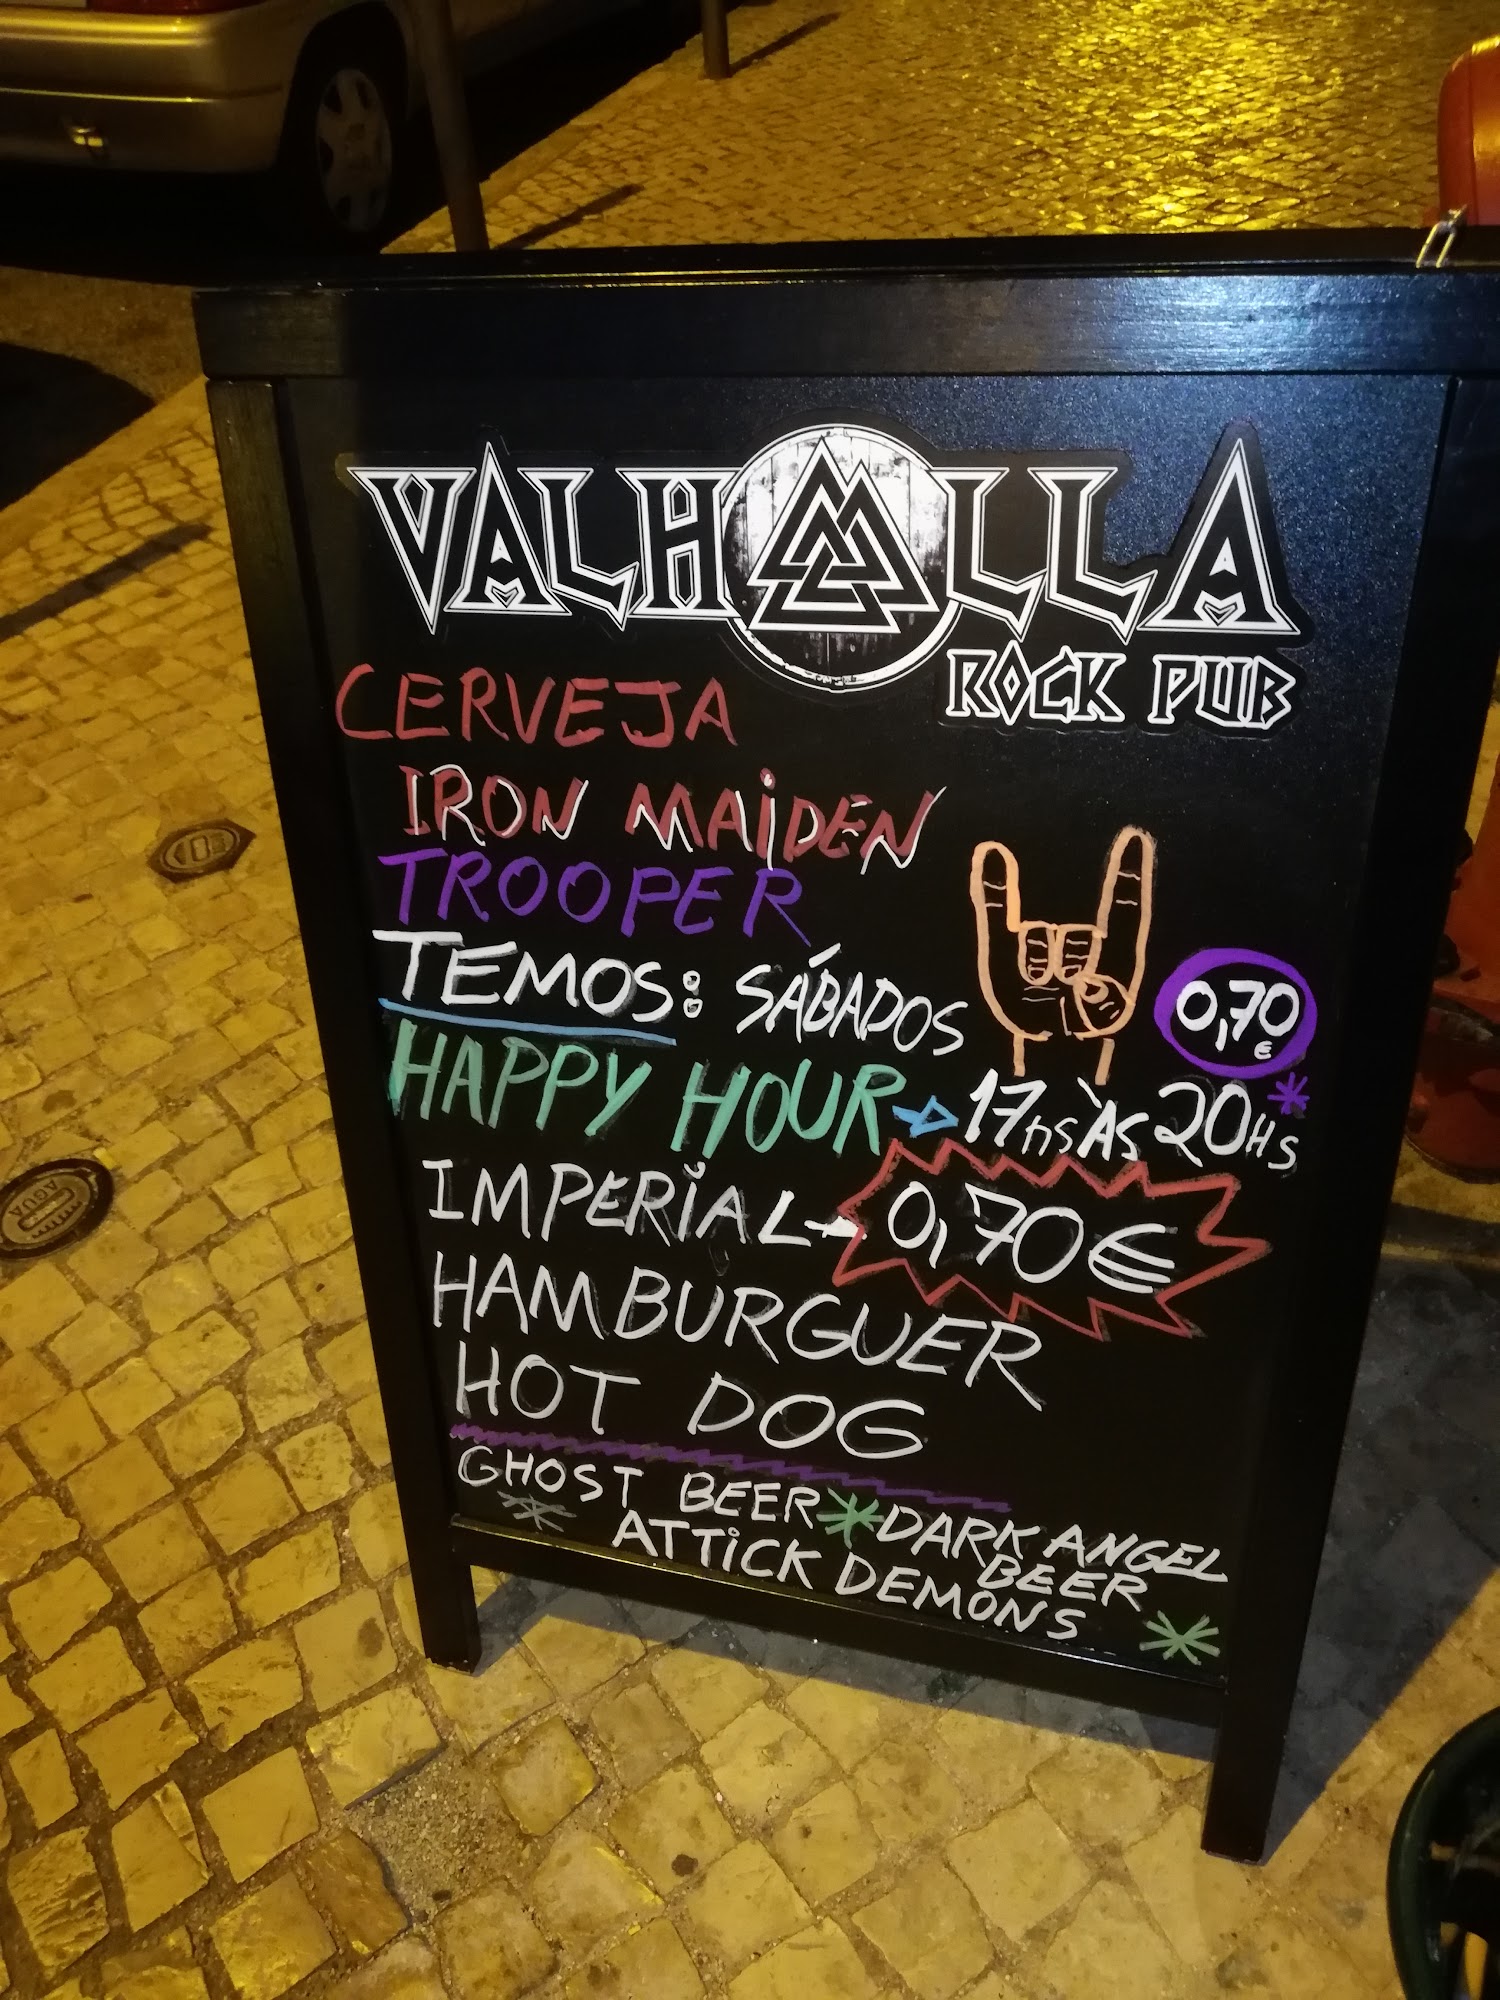 VALHALLA
ROCK PUB
CERVEJA
IRON MAIDEN
TROOPER
TEMOS: SÁBADOS
0,70
€
HAPPY HOUR → 17HS ÀS 20HS
IMPERIAL - 0,70€
HAMBURGUER
HOT DOG
GHOST BEER * DARK ANGEL
BEER
ATTICK DEMONS
AGUA